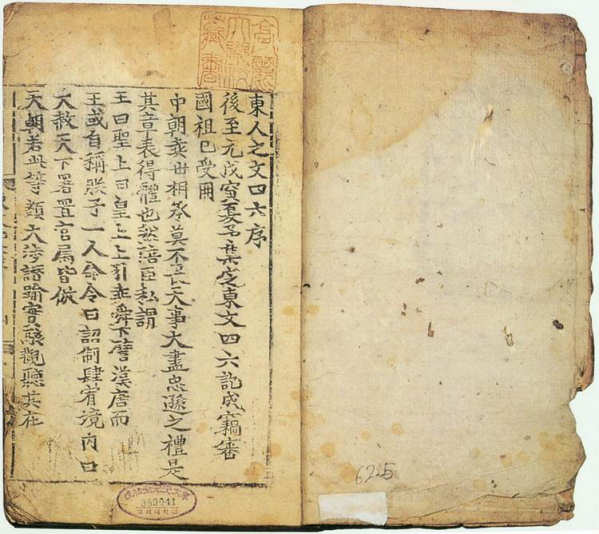 東人之文四六序
後至元戊寅夏予集定東文四六訖成竊審
國祖已受冊
中朝奕世相承莫不畏天事大盡忠遜之禮是
其章表得體也然陪臣私謂
王曰聖上曰皇上上引堯舜下譬漢唐而
王或自稱朕予一人命令曰詔制肆宥境內曰
大赦天下署置官屬皆倣
天朝若此等類大涉譖踰實駭觀聽其在
高麗大學校藏書
625